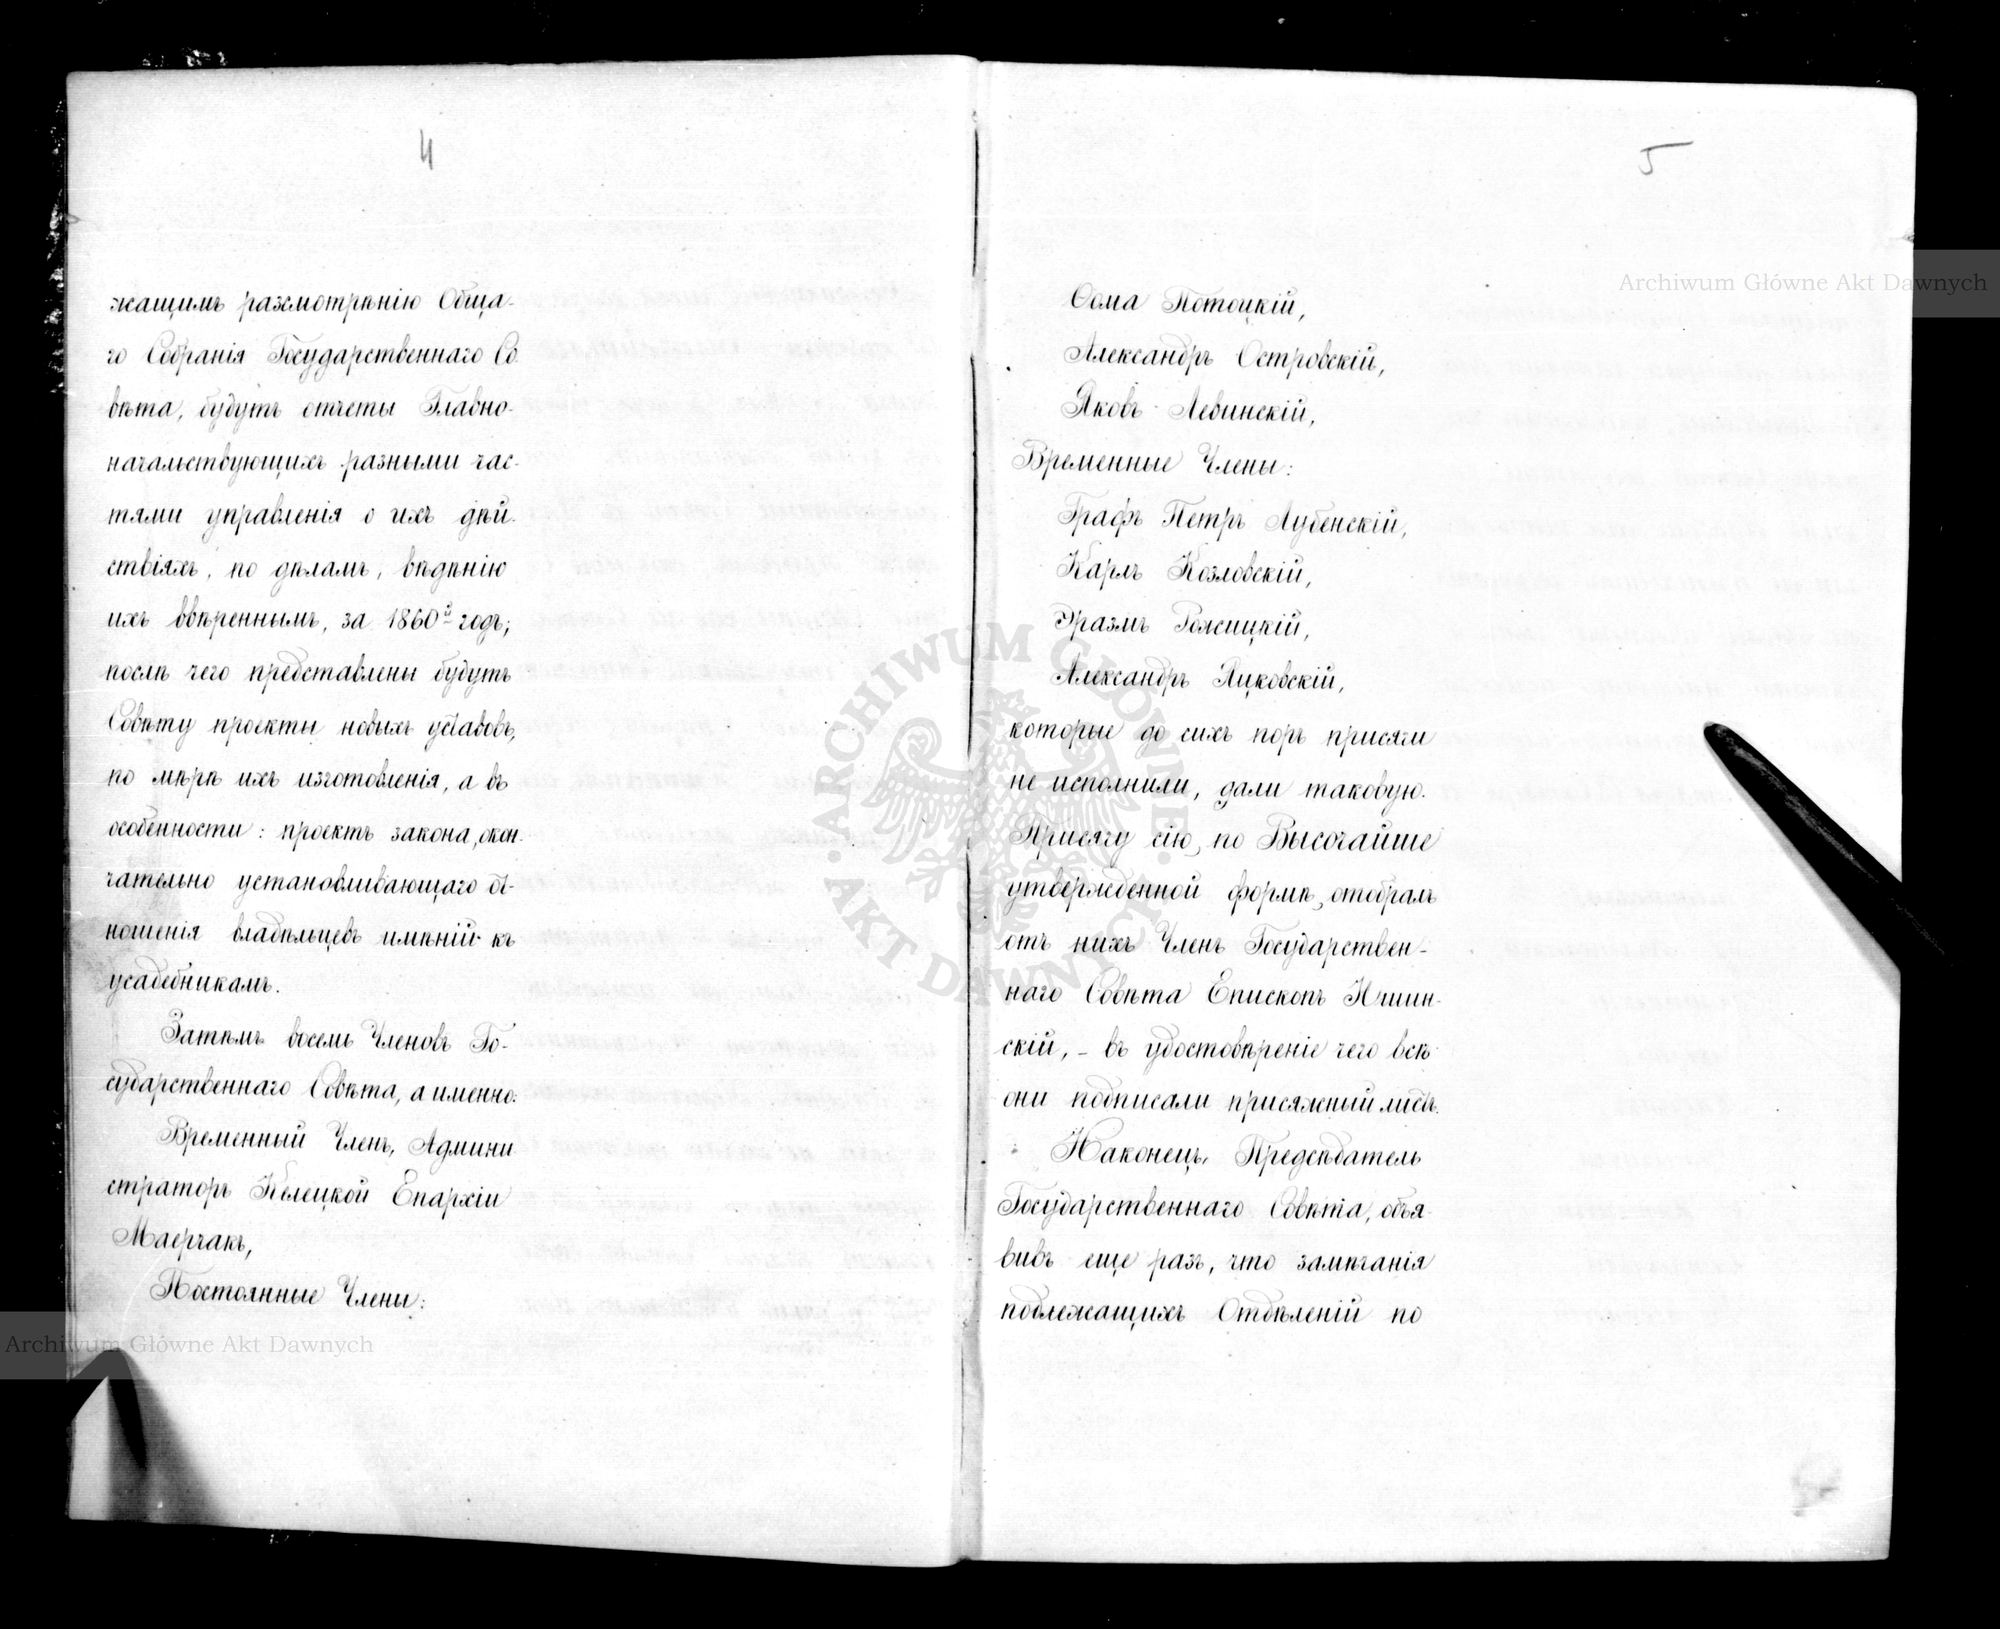 4
жащимъ разсмотрѣнію Обща-
го Собранія Государственнаго Со
вѣта, будутъ отчеты Главно-
начальствующихъ разными час-
тями управленія о ихъ дѣй-
ствіяхъ, по дѣламъ, вѣдѣнію
ихъ ввѣреннымъ, за 1860й годъ;
послѣ чего представлены будутъ
Совѣту проекты новыхъ уставовъ,
по мѣрѣ ихъ изготовленія, а въ
особенности: проектъ закона, окон-
чательно установливающаго от-
ношенія владѣльцевъ имѣній къ
усадебникамъ.
Затѣмъ восемь Членовъ Го-
сударственнаго Совѣта, а именно:
Временный Членъ, Админи
страторъ Келецкой Епархіи
Маерчакъ,
Постоянные Члены:
5
Ѳома Потоцкій,
Александръ Островскій,
Яковъ Левинскій,
Временные Члены:
Графъ Петръ Лубенскій,
Карлъ Козловскій,
Эразмъ Рожицкій,
Александръ Яцковскій,
которые до сихъ поръ присяги
не исполнили, дали таковую.
Присягу сію, по Высочайше
утвержденной формѣ, отобралъ
отъ нихъ Членъ Государствен-
наго Совѣта Епископъ
скій, - въ удостовѣреніе чего всѣ
они подписали присяжный листъ.
Наконецъ, Предсѣдатель
Государственнаго Совѣта, объя-
вивъ еще разъ, что замѣчанія
подлежащихъ Отдѣленій по
Archiwum Główne Akt Dawnych
Archiwum Główne Akt Dawnych
ARCHIWUM GŁÓWNE AKT DAWNYCH